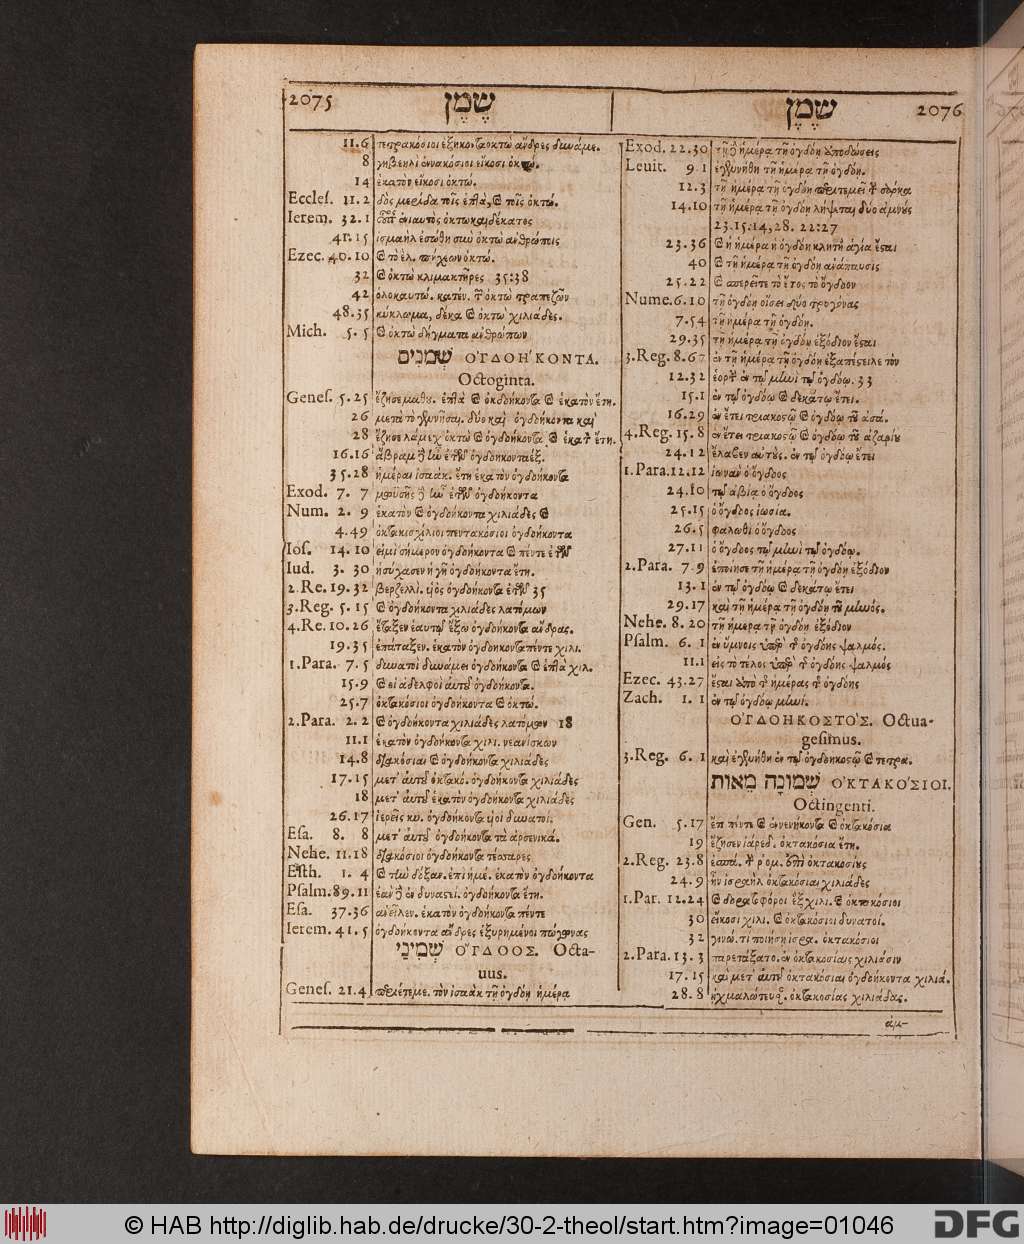 2075 שֶׁמֶן
11.6 τετρακόσιοι ἑξήκοντα ὀκτὼ ἄνδρες δυνάμε.
8 εἴκοσι ὀκτώ.
14 ἑκατὸν εἴκοσι ὀκτώ.
Eccles. 11.2 δὸς μερίδα τοῖς ἑπτὰ, καὶ τοῖς ὀκτώ.
Ierem. 32.1 ἐνιαυτὸς ὀκτωκαιδέκατος
41.15 ἰσμαὴλ ἐσώθη σὺν ὀκτὼ ἀνθρώποις
Ezec. 40.10
32 καὶ ὀκτὼ κλιμακτῆρες 35:38
42 ὁλοκαυτώ. κατέν. τῶν ὀκτὼ τραπεζῶν
48.35 κύκλωμα, δέκα καὶ ὀκτὼ χιλιάδες.
Mich. 5.5 καὶ ὀκτὼ δήγματα ἀνθρώπων
שְׁמֹנִים ὈΓΔΟΉΚΟΝΤΑ.
Octoginta.
Genes. 5.25 ἔζησε μαθου. ἑπτὰ καὶ ὀγδοήκοντα καὶ ἑκατὸν ἔτη.
26 μετὰ τὸ γεννῆσαι δύο καὶ ὀγδοήκοντα καὶ
28 ἔζησε λάμεχ ὀκτὼ καὶ ὀγδοήκοντα καὶ ἑκατὸν ἔτη.
16.16 ἄβραμ δὲ ἦν ἐτῶν ὀγδοηκονταέξ.
35.28 ἡμέραι ἰσαάκ. ἔτη ἑκατὸν ὀγδοήκοντα
Exod. 7.7 μωϋσῆς δὲ ἦν ἐτῶν ὀγδοήκοντα
Num. 2.9 ἑκατὸν καὶ ὀγδοήκοντα χιλιάδες καὶ
4.49 ὀκτακισχίλιοι πεντακόσιοι ὀγδοήκοντα
Ios. 14.10 εἰμὶ σήμερον ὀγδοήκοντα καὶ πέντε ἐτῶν
Iud. 3.30 ἡσύχασεν ἡ γῆ ὀγδοήκοντα ἔτη.
2.Re. 19.32 βερζελλὶ. υἱὸς ὀγδοήκοντα ἐτῶν 35
3.Reg. 5.15 καὶ ὀγδοήκοντα χιλιάδες λατόμων
4.Re. 10.26 ἔταξεν ἑαυτῷ ἔξω ὀγδοήκοντα ἄνδρας.
19.35 ἐπάταξεν. ἑκατὸν ὀγδοηκονταπέντε χιλι.
1.Para. 7.5 δυνατοὶ δυνάμει ὀγδοήκοντα καὶ ἑπτὰ χιλ.
15.9 καὶ οἱ ἀδελφοὶ αὐτοῦ ὀγδοήκοντα.
25.7 ὀκτακόσιοι ὀγδοήκοντα καὶ ὀκτώ.
2.Para. 2.2 καὶ ὀγδοήκοντα χιλιάδες λατόμων 18
11.1 ἑκατὸν ὀγδοήκοντα χιλι. νεανίσκων
14.8 διακόσιαι καὶ ὀγδοήκοντα χιλιάδες
17.15 μετ' αὐτοῦ διακό. ὀγδοήκοντα χιλιάδες
18 μετ' αὐτοῦ ἑκατὸν ὀγδοήκοντα χιλιάδες
26.17 ἱερεῖς κυ. ὀγδοήκοντα υἱοὶ δυνατοί.
Esa. 8.8 μετ' αὐτοῦ ὀγδοήκοντα τὰ ἀρσενικά.
Nehe. 11.18 διακόσιοι ὀγδοήκοντα τέσσαρες
Esth. 1.4 καὶ τὴν δόξαν. ἐπὶ ἡμέ. ἑκατὸν ὀγδοήκοντα
Psalm. 89.11 ἐὰν δὲ ἐν δυναστεί. ὀγδοήκοντα ἔτη.
Esa. 37.36 ἀνεῖλεν. ἑκατὸν ὀγδοήκοντα πέντε
Ierem. 41.5 ὀγδοήκοντα ἄνδρες ἐξυρημένοι πώγωνας
שְׁמִינִי ὌΓΔΟΟΣ. Octa-
uus.
Genes. 21.4 περιέτεμε. τὸν ἰσαὰκ τῇ ὀγδόῃ ἡμέρᾳ
שֶׁמֶן 2076
Exod. 22.30 τῇ δὲ ἡμέρᾳ τῇ ὀγδόῃ ἀποδώσεις
Leuit. 9.1 ἐγενήθη τῇ ἡμέρᾳ τῇ ὀγδόῃ.
12.3 τῇ ἡμέρᾳ τῇ ὀγδόῃ περιτεμεῖ τὴν σάρκα
14.10 τῇ ἡμέρᾳ τῇ ὀγδόῃ λήψεται δύο ἀμνοὺς
23. 15:14, 28. 22:27
23.36 καὶ ἡ ἡμέρα ἡ ὀγδόη κλητὴ ἁγία ἔσται
40 καὶ τῇ ἡμέρᾳ τῇ ὀγδόῃ ἀνάπαυσις
25.22 καὶ σπερεῖτε τὸ ἔτος τὸ ὄγδοον
Nume. 6.10 τῇ ὀγδόῃ οἴσει δύο τρυγόνας
7.54 τῇ ἡμέρᾳ τῇ ὀγδόῃ.
29.35 τῇ ἡμέρᾳ τῇ ὀγδόῃ ἐξόδιον ἔσται
3.Reg. 8.67 ἐν τῇ ἡμέρᾳ τῇ ὀγδόῃ ἐξαπέστειλε τὸν
12.32 ἑορτὴν ἐν τῷ μηνὶ τῷ ὀγδόῳ. 33
15.1 ἐν τῷ ὀγδόῳ καὶ δεκάτῳ ἔτει.
16.29 ἐν ἔτει τριακοστῷ καὶ ὀγδόῳ τοῦ ἀσά.
4.Reg. 15.8 ἐν ἔτει τριακοστῷ καὶ ὀγδόῳ τοῦ ἀζαρίου
24.12 ἔλαβεν αὐτοὺς. ἐν τῷ ὀγδόῳ ἔτει
1.Para. 12.12 ἰωνὰν ὁ ὄγδοος
24.10 τῷ ἀβία ὁ ὄγδοος
25.15 ὁ ὄγδοος ἰωσία.
26.5 φαλωθὶ ὁ ὄγδοος
27.11 ὁ ὄγδοος τῷ μηνὶ τῷ ὀγδόῳ.
2.Para. 7.9 ἐποίησε τῇ ἡμέρᾳ τῇ ὀγδόῃ ἐξόδιον
13.1 ἐν τῷ ὀγδόῳ καὶ δεκάτῳ ἔτει
29.17 καὶ τῇ ἡμέρᾳ τῇ ὀγδόῃ τοῦ μηνός.
Nehe. 8.20 τῇ ἡμέρᾳ τῇ ὀγδόῃ ἐξόδιον
Psalm. 6.1 ἐν ὕμνοις ὑπὲρ τῆς ὀγδόης ψαλμός.
11.1 εἰς τὸ τέλος ὑπὲρ τῆς ὀγδόης ψαλμός
Ezec. 43.27 ἔσται ἀπὸ τῆς ἡμέρας τῆς ὀγδόης
Zach. 1.1 ἐν τῷ ὀγδόῳ μηνί.
ὈΓΔΟΗΚΟΣΤΌΣ. Octua-
gesimus.
3.Reg. 6.1 καὶ ἐγενήθη ἐν τῷ ὀγδοηκοστῷ καὶ τετρα.
שְׁמוֹנָה מֵאוֹת ὈΚΤΑΚΌΣΙΟΙ.
Octingenti.
Gen. 5.17 ἔτη πέντε καὶ ἐννενήκοντα καὶ ὀκτακόσια
19 ἔζησεν ἰάρεδ. ὀκτακόσια ἔτη.
2.Reg. 23.8 ὀκτακοσίους
24.9 ἦν ἰσραὴλ ὀκτακόσιαι χιλιάδες
1.Par. 12.24 καὶ δορατοφόροι ἓξ χιλι. καὶ ὀκτακόσιοι
30 εἴκοσι χιλι. καὶ ὀκτακόσιοι δυνατοί.
32 γινώ. τί ποιήσῃ ἰσρα. ὀκτακόσιοι
2.Para. 13.3 παρετάξατο. ἐν ὀκτακοσίαις χιλιάσιν
17.15 καὶ μετ' αὐτοῦ ὀκτακόσιαι ὀγδοήκοντα χιλιά.
28.8 ᾐχμαλώτευσ. ὀκτακοσίας χιλιάδας.
ἀμ-
© HAB http://diglib.hab.de/drucke/30-2-theol/start.htm?image=01046
DFG